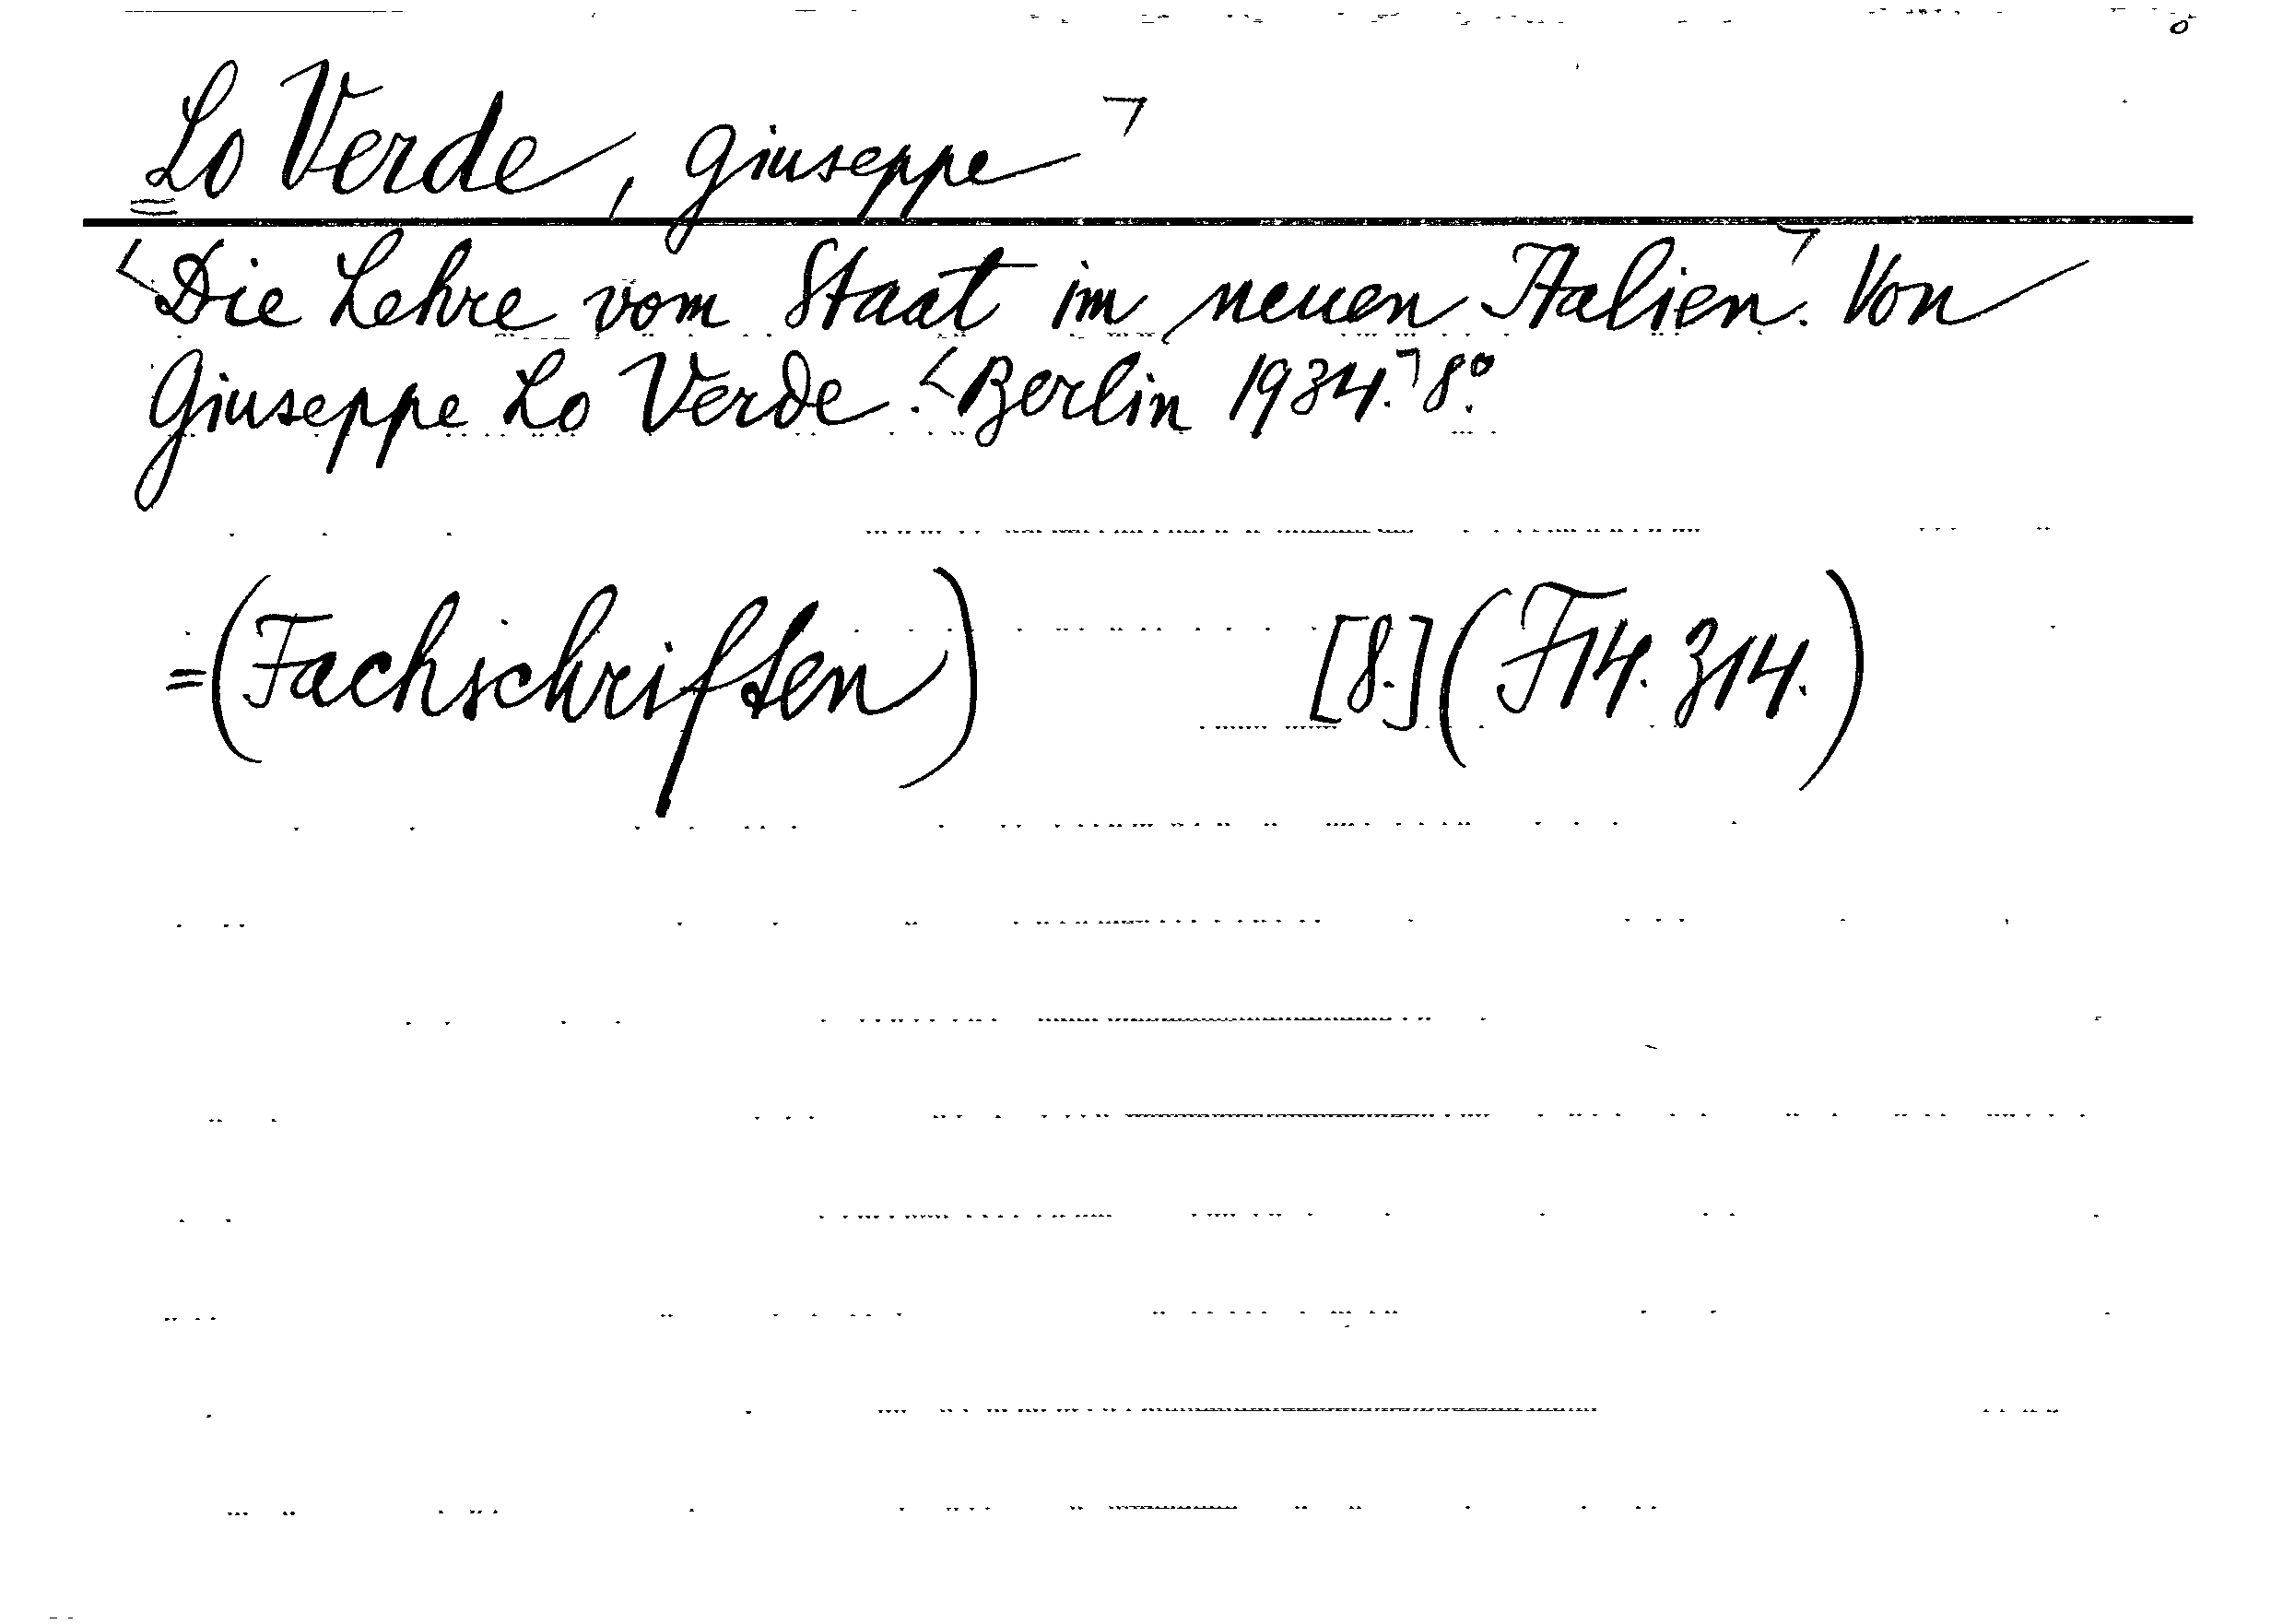 Lo Verde, Giuseppe ¬
<Die Lehre vom Staat im neuen Italien.¬ Von
Giuseppe Lo Verde. <Berlin 1934.¬ 8°.
=(Fachschriften) [8.] (F14.314.)